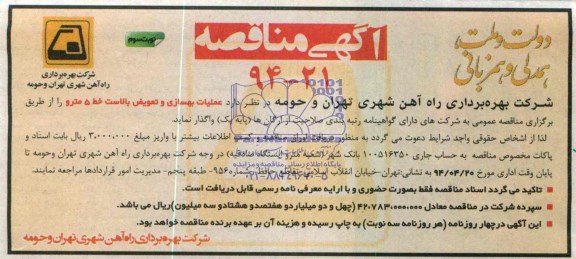 دولت و ملت،
همدلی و همزبانی
آگهی مناقصه
۹۴-۲۱
نوبت سوم
شرکت بهره‌برداری
راه آهن شهری تهران و حومه
شرکت بهره‌برداری راه آهن شهری تهران و حومه در نظر دارد عملیات بهسازی و تعویض بالاست خط ۵ مترو را از طریق
برگزاری مناقصه عمومی به شرکت های دارای گواهینامه رتبه بندی صلاحیت از ارگان ها (پایه یک) واگذار نماید.
لذا از اشخاص حقوقی واجد شرایط دعوت می گردد به منظور دریافت اطلاعات بیشتر با واریز مبلغ ۳,۰۰۰,۰۰۰ ریال بابت اسناد و
پاکات مخصوص مناقصه به حساب جاری ۱۰۰۵۱۴۳۵۰ بانک شهر (شعبه مترو ایستگاه صادقیه) در وجه شرکت بهره‌برداری راه آهن شهری تهران و حومه تا
پایان وقت اداری مورخ ۹۴/۰۴/۲۰ به نشانی:تهران-خیابان انقلاب اسلامی-تقاطع حافظ-شماره ۹۵۶-طبقه پنجم- مدیریت امور قراردادها مراجعه نمایند.
■ تاکید می گردد اسناد مناقصه فقط بصورت حضوری و با ارایه معرفی نامه رسمی قابل دریافت است.
■ سپرده شرکت در مناقصه معادل ۴۲,۷۸۳,۰۰۰,۰۰۰ (چهل و دو میلیارد و هفتصد و هشتاد و سه میلیون) ریال می باشد.
■ این آگهی در چهار روزنامه (هر روزنامه سه نوبت) به چاپ رسیده و هزینه آن بر عهده برنده مناقصه خواهد بود.
شرکت بهره‌برداری راه آهن شهری تهران و حومه